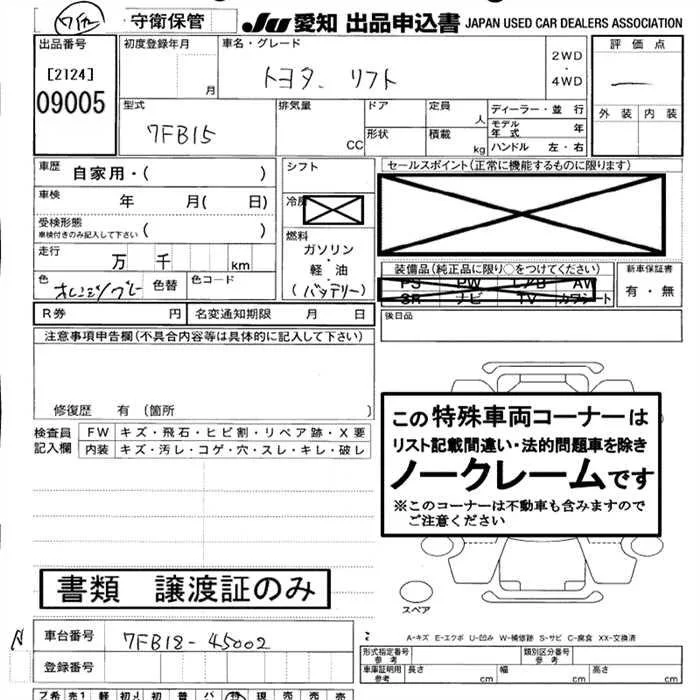 守衛保管 JU 愛知 出品申込書 JAPAN USED CAR DEALERS ASSOCIATION
出品番号 初度登録年月 車名・グレード 2WD・4WD 評価点
[2124] 月 トヨタ リフト 一
09005 外装 内装
型式 排気量 ドア 定員 人 ディーラー・並行
7FB15 CC 形状 積載 kg モデル年式 年
ハンドル 左・右
車歴 自家用・( ) シフト セールスポイント(正常に機能するものに限ります)
車検 年 月( 日)
受検形態 車検付きのみ記入して下さい ( )
走行 万 千 km 燃料 ガソリン・軽・油・(バッテリー)
色 オレンジ/グレー 色替 色コード
装備品(純正品に限り○をつけてください) 新車保証書
PS PW L/B AW 有・無
SR ナビ TV カワシート
R券 円 名変通知期限 月 日 後日品
注意事項申告欄(不具合内容等は具体的に記入して下さい)
修復歴 有 (箇所 )
検査員記入欄 FW キズ・飛石・ヒビ割・リペア跡・X要
内装 キズ・汚レ・コゲ・穴・スレ・キレ・破レ
この特殊車両コーナーは
リスト記載間違い・法的問題車を除き
ノークレームです
※このコーナーは不動車も含みますので
ご注意ください
書類 譲渡証のみ
スペア
A-キズ E-エクボ U-凹み W-補修跡 S-サビ C-腐食 XX-交換済
車台番号 7FB18-45002
登録番号
形式指定番号 参考 類別区分番号 参考
車庫証明用 参考 長さ cm 幅 cm 高さ cm